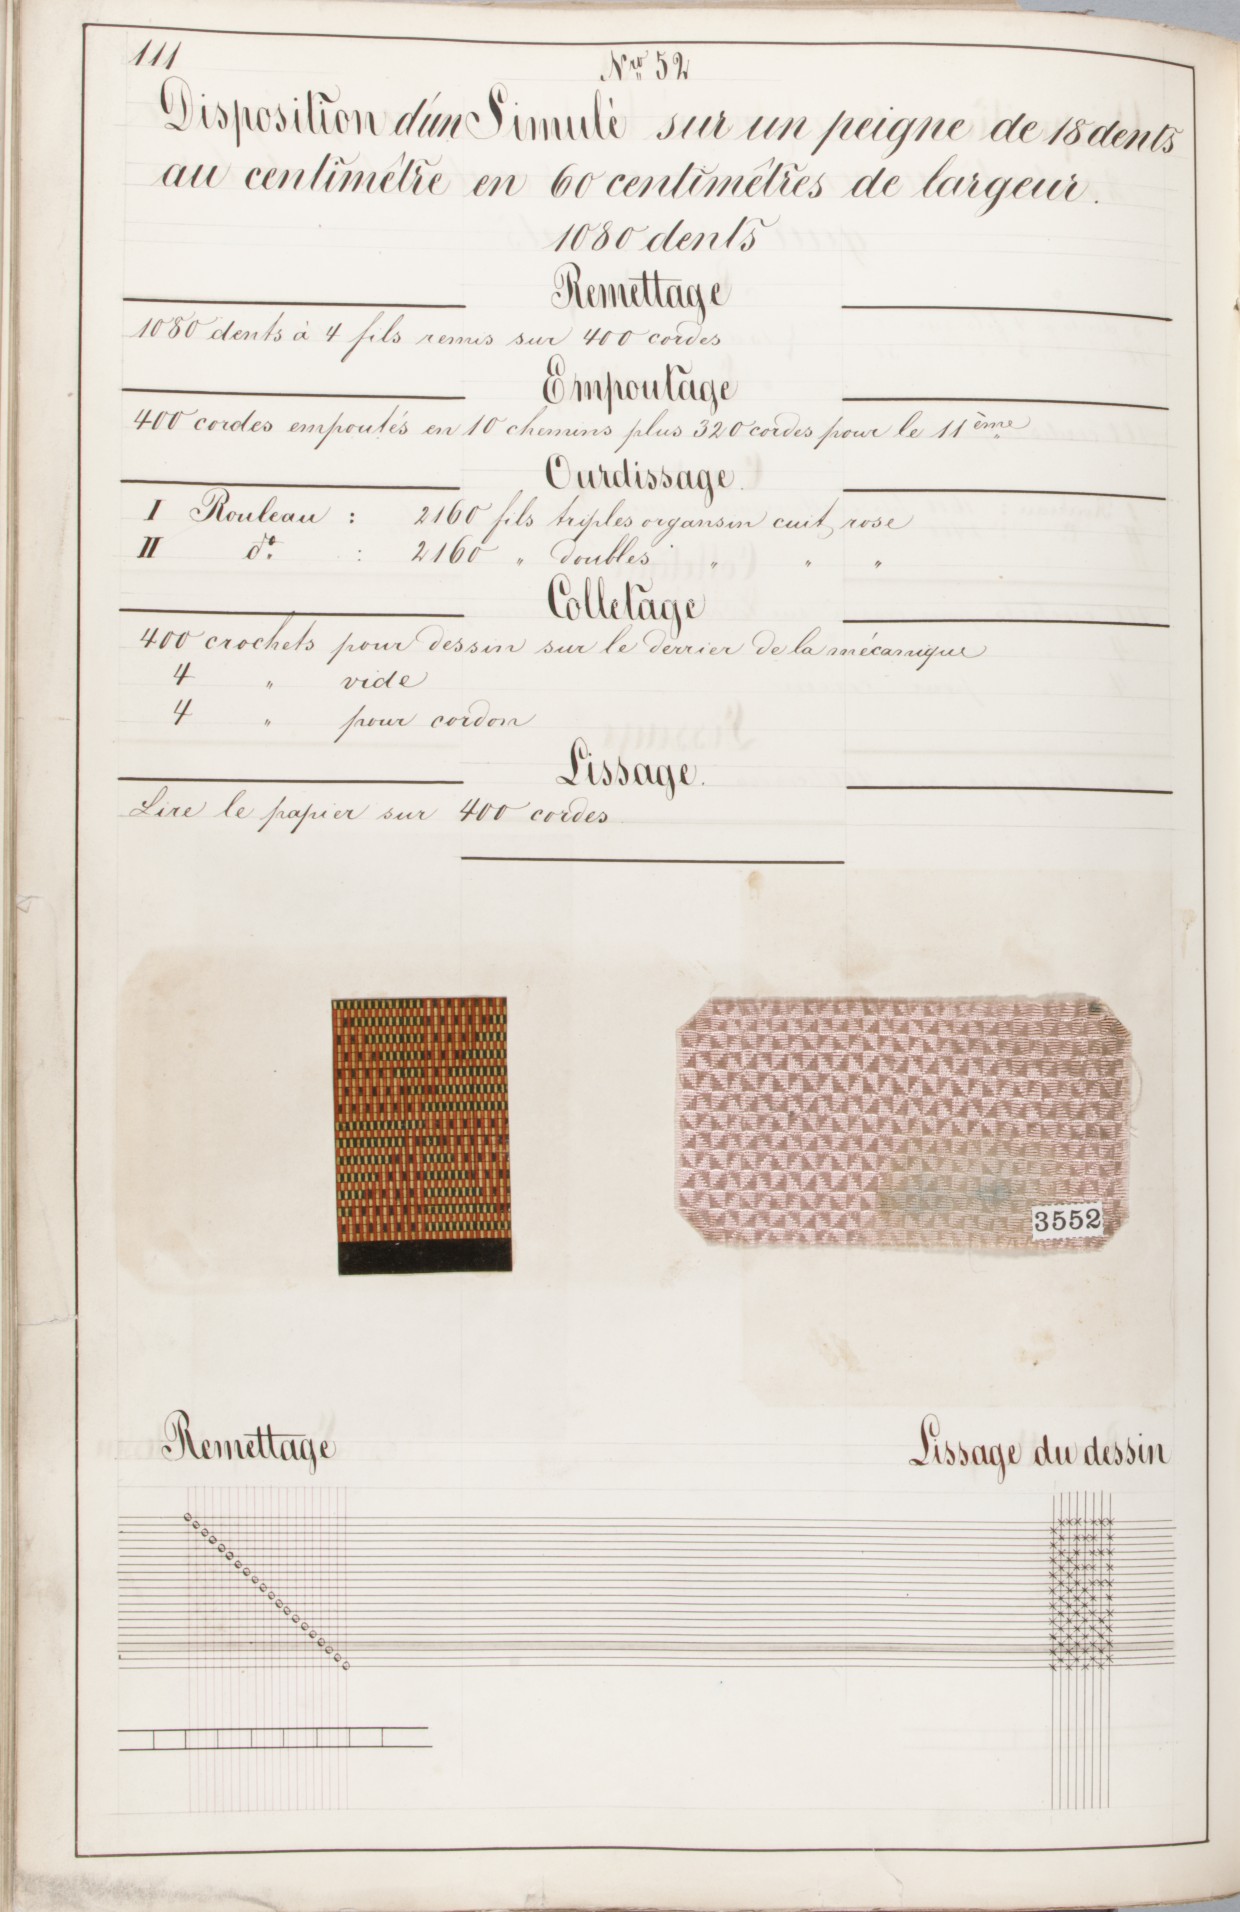 111
Nro 52
Disposition d'un Simulé sur un peigne de 18 dents
au centimêtre en 60 centimêtres de largeur.
1080 dents
Remettage
1080 dents à 4 fils remis sur 400 cordes
Empoutage
400 cordes empoutés en 10 chemins plus 320 cordes pour le 11 ème
Ourdissage.
I Rouleau : 2160 fils triples organsin cuit rose
II do. : 2160 " doubles " " "
Colletage
400 crochets pour dessin sur le derrier de la mécanique
4 " vide
4 " pour cordon
Lissage.
Lire le papier sur 400 cordes
3552
Remettage
Lissage du dessin